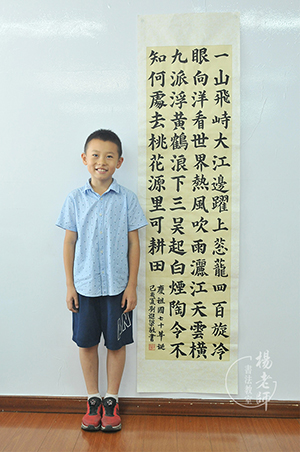 一山飛峙大江邊躍上葱龍四百旋冷
眼向洋看世界熱風吹雨灑江天雲橫
九派浮黄鶴浪下三吴起白煙陶令不
知何處去桃花源里可耕田
慶祖國七十華誕
己亥夏刘書
楊老師
書法教室